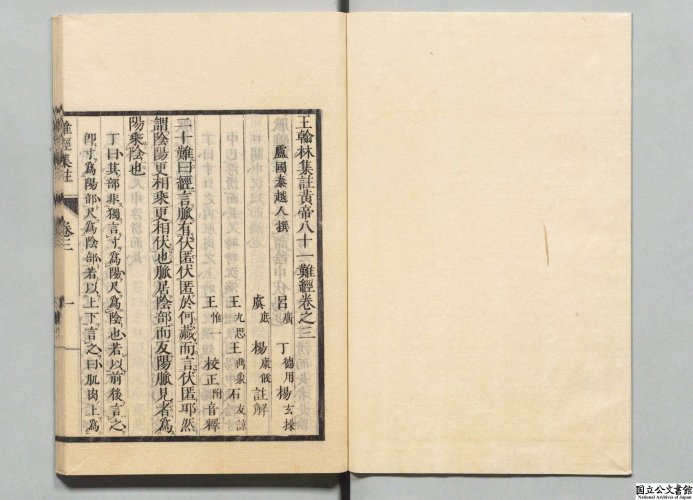 王翰林集註黄帝八十一難經卷之三
盧國秦越人撰
呂廣 丁德用 楊玄操
虞庶 楊康侯 註解
王九思 王鼎象 石友諒
王惟一 校正附音釋
二十難曰經言脈有伏匿伏匿於何藏而言伏匿耶然
謂陰陽更相乘更相伏也脈居陰部而反陽脈見者爲
陽乘陰也
丁曰其部非獨言寸爲陽尺爲陰也若以前後言之
即寸爲陽部尺爲陰部若以上下言之曰肌肉上爲
難經集註 卷三 一
国立公文書館
National Archives of Japan